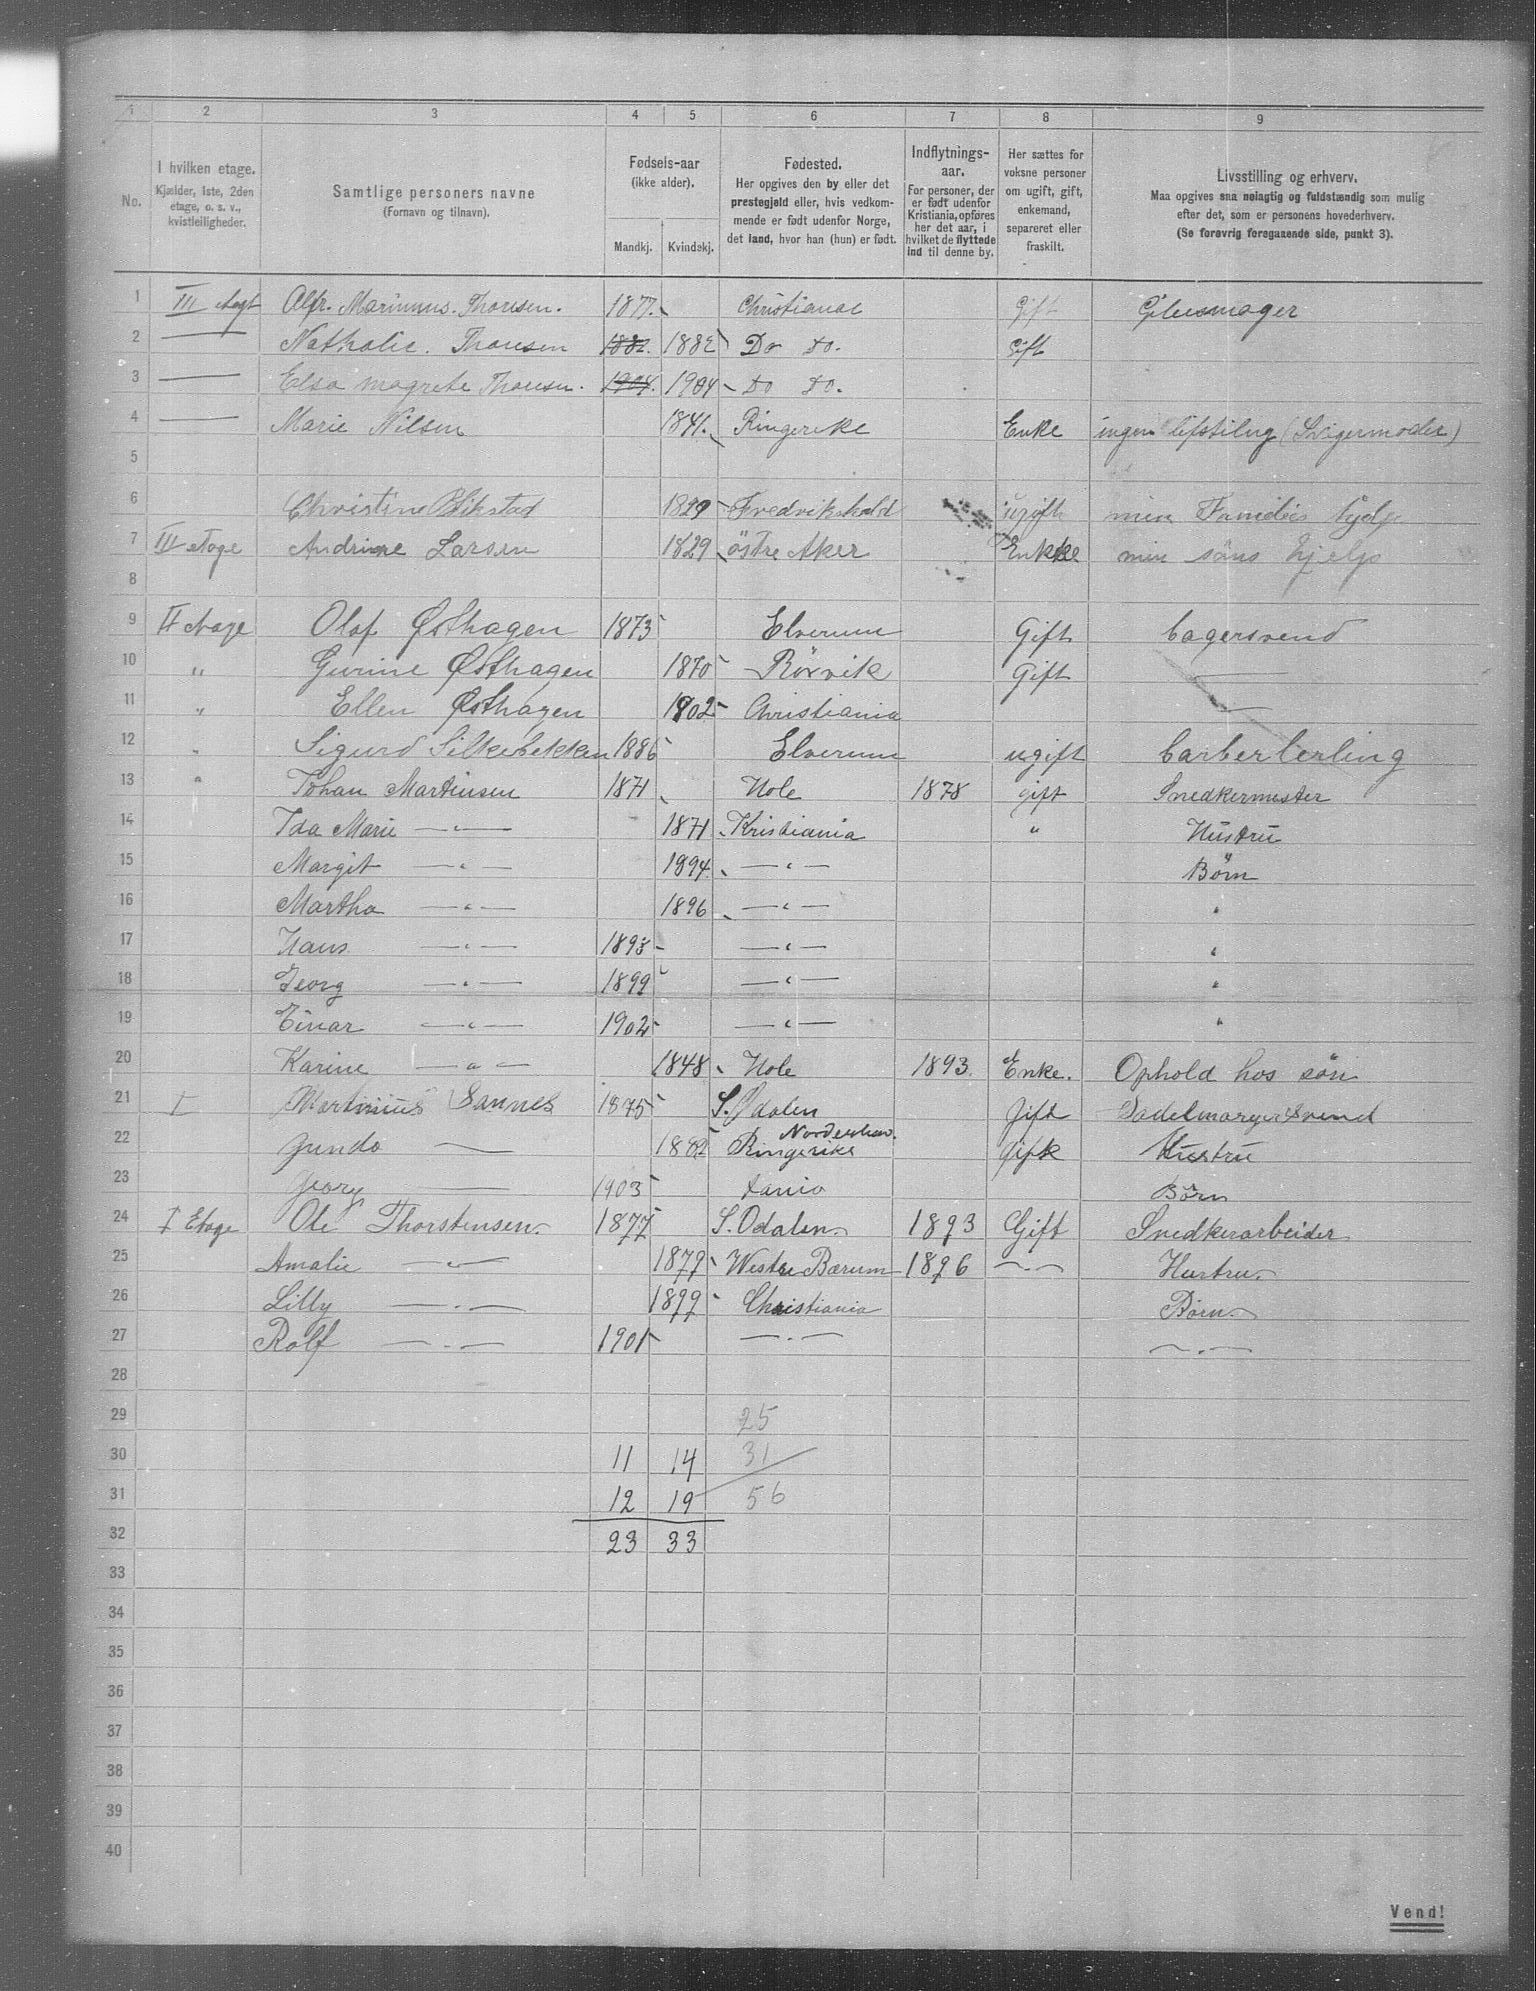 1 2 3 4 5 6 7 8 9
No.
I hvilken etage.
Kjælder, 1ste, 2den
etage, o. s. v.,
kvistleiligheder.
Samtlige personers navne
(Fornavn og tilnavn).
Fødsels-aar
(ikke alder).
Mandkj. Kvindekj.
Fødested.
Her opgives den by eller det
prestegjeld eller, hvis vedkom-
mende er født udenfor Norge,
det land, hvor han (hun) er født.
Indflytnings-
aar.
For personer, der
er født udenfor
Kristiania, opføres
her det aar, i
hvilket de flyttede
ind til denne by.
Her sættes for
voksne personer
om ugift, gift,
enkemand,
separeret eller
fraskilt.
Livsstilling og erhverv.
Maa opgives saa nøiagtig og fuldstændig som mulig
efter det, som er personens hovederhverv.
(Se forøvrig foregaaende side, punkt 3).
1 III Alfr. Marinius. Thoresen. 1877. Christianae Gift
2 — Nathalie. Thoresen 1882. 1882 Do Do. Gift
3 — Elsa magrete Thoresen. 1904. 1904 Do Do.
4 — Marie Nilsen 1841. Ringerike Enke ingen lifstilng (Svigermoder)
5
6 Christine 1829 Fredrikshald ugift min Families hjelp
7 III etage Andrine Larsen 1829 östre Aker Enke min söns hjelp
8
9 II etage Olaf Østhagen 1873 Elverum Gift bagersvend
10 " Gurine Østhagen 1870 Rörvik Gift —
11 " Ellen Østhagen 1902 Christiania —
12 " Sigurd Silkebekken 1886 Elverum ugift barberlerling
13 " Johan Martinsen 1871 Hole 1878 gift Snedkermester
14 Ida Marie — " — 1871 Kristiania " Hustru
15 Margit — " — 1894. — " — Børn
16 Martha — " — 1896 — " — "
17 Hans — " — 1893 — " — "
18 Georg — " — 1899 — " — "
19 Einar — " — 1902 — " — "
20 Karine — " — 1848 Hole 1893. Enke. Ophold hos sön
21 I Martinius Sannes 1875 S. Odalen Gift Sadelmagersvend
22 Gunda — 1882 Norderhov. Ringerike Gift Hustru
23 Georg — 1903 Børn
24 I Etage Ole Thorstensen. 1877 S. Odalen. 1893 Gift Snedkerarbeider
25 Amalie — " — 1879 Westre Bærum 1896 — " — Hustru.
26 Lilly — " — 1899 Christiania Børn.
27 Rolf — " — 1901 — " — — " —
28
29 25
30 11 14 31
31 12 19 56
32 23 33
33
34
35
36
37
38
39
40
Vend!